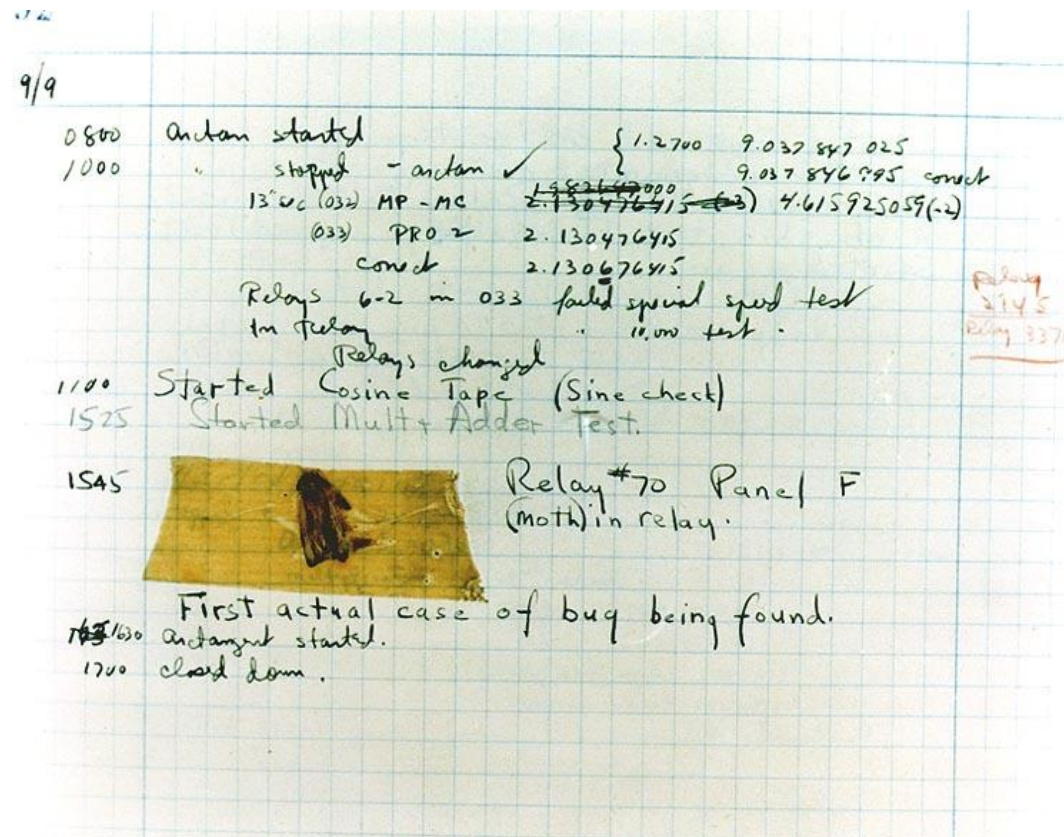 9/9
0800 antan started { 1.2700 9.037 847 025
1000 " stopped - antan ✓ 9.037 846 995 conect
13" uc (032) MP - MC 2.130476415 (-3) 4.615925059(-2)
(033) PRO 2 2.130476415
conect 2.130676415
Relays 6-2 in 033 failed special speed test
In Relay " 10,000 test .
Relays changed
1100 Started Cosine Tape (Sine check)
1525 Started Mult + Adder Test.
1545 Relay #70 Panel F
(moth) in relay.
First actual case of bug being found.
1630 antangent started.
1700 closed down .
Relay
2145
Relay 337